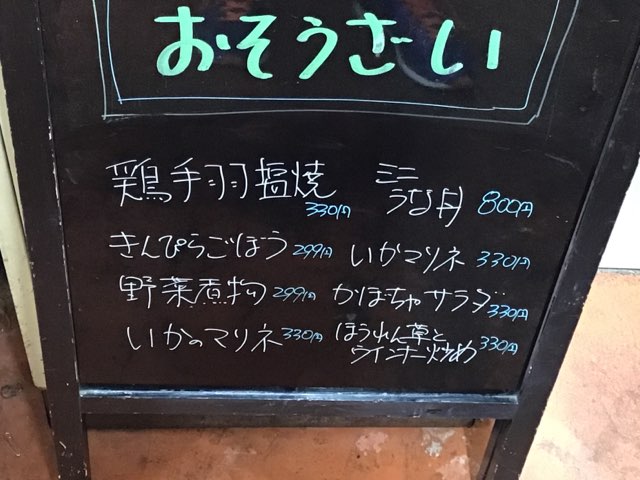 おそうざい
鶏手羽塩焼 330円
ミニ
うな丼 800円
きんぴらごぼう 299円
いかマリネ 330円
野菜煮物 299円
かぼちゃサラダ 330円
いかのマリネ 330円
ほうれん草と
ウインナー炒め 330円